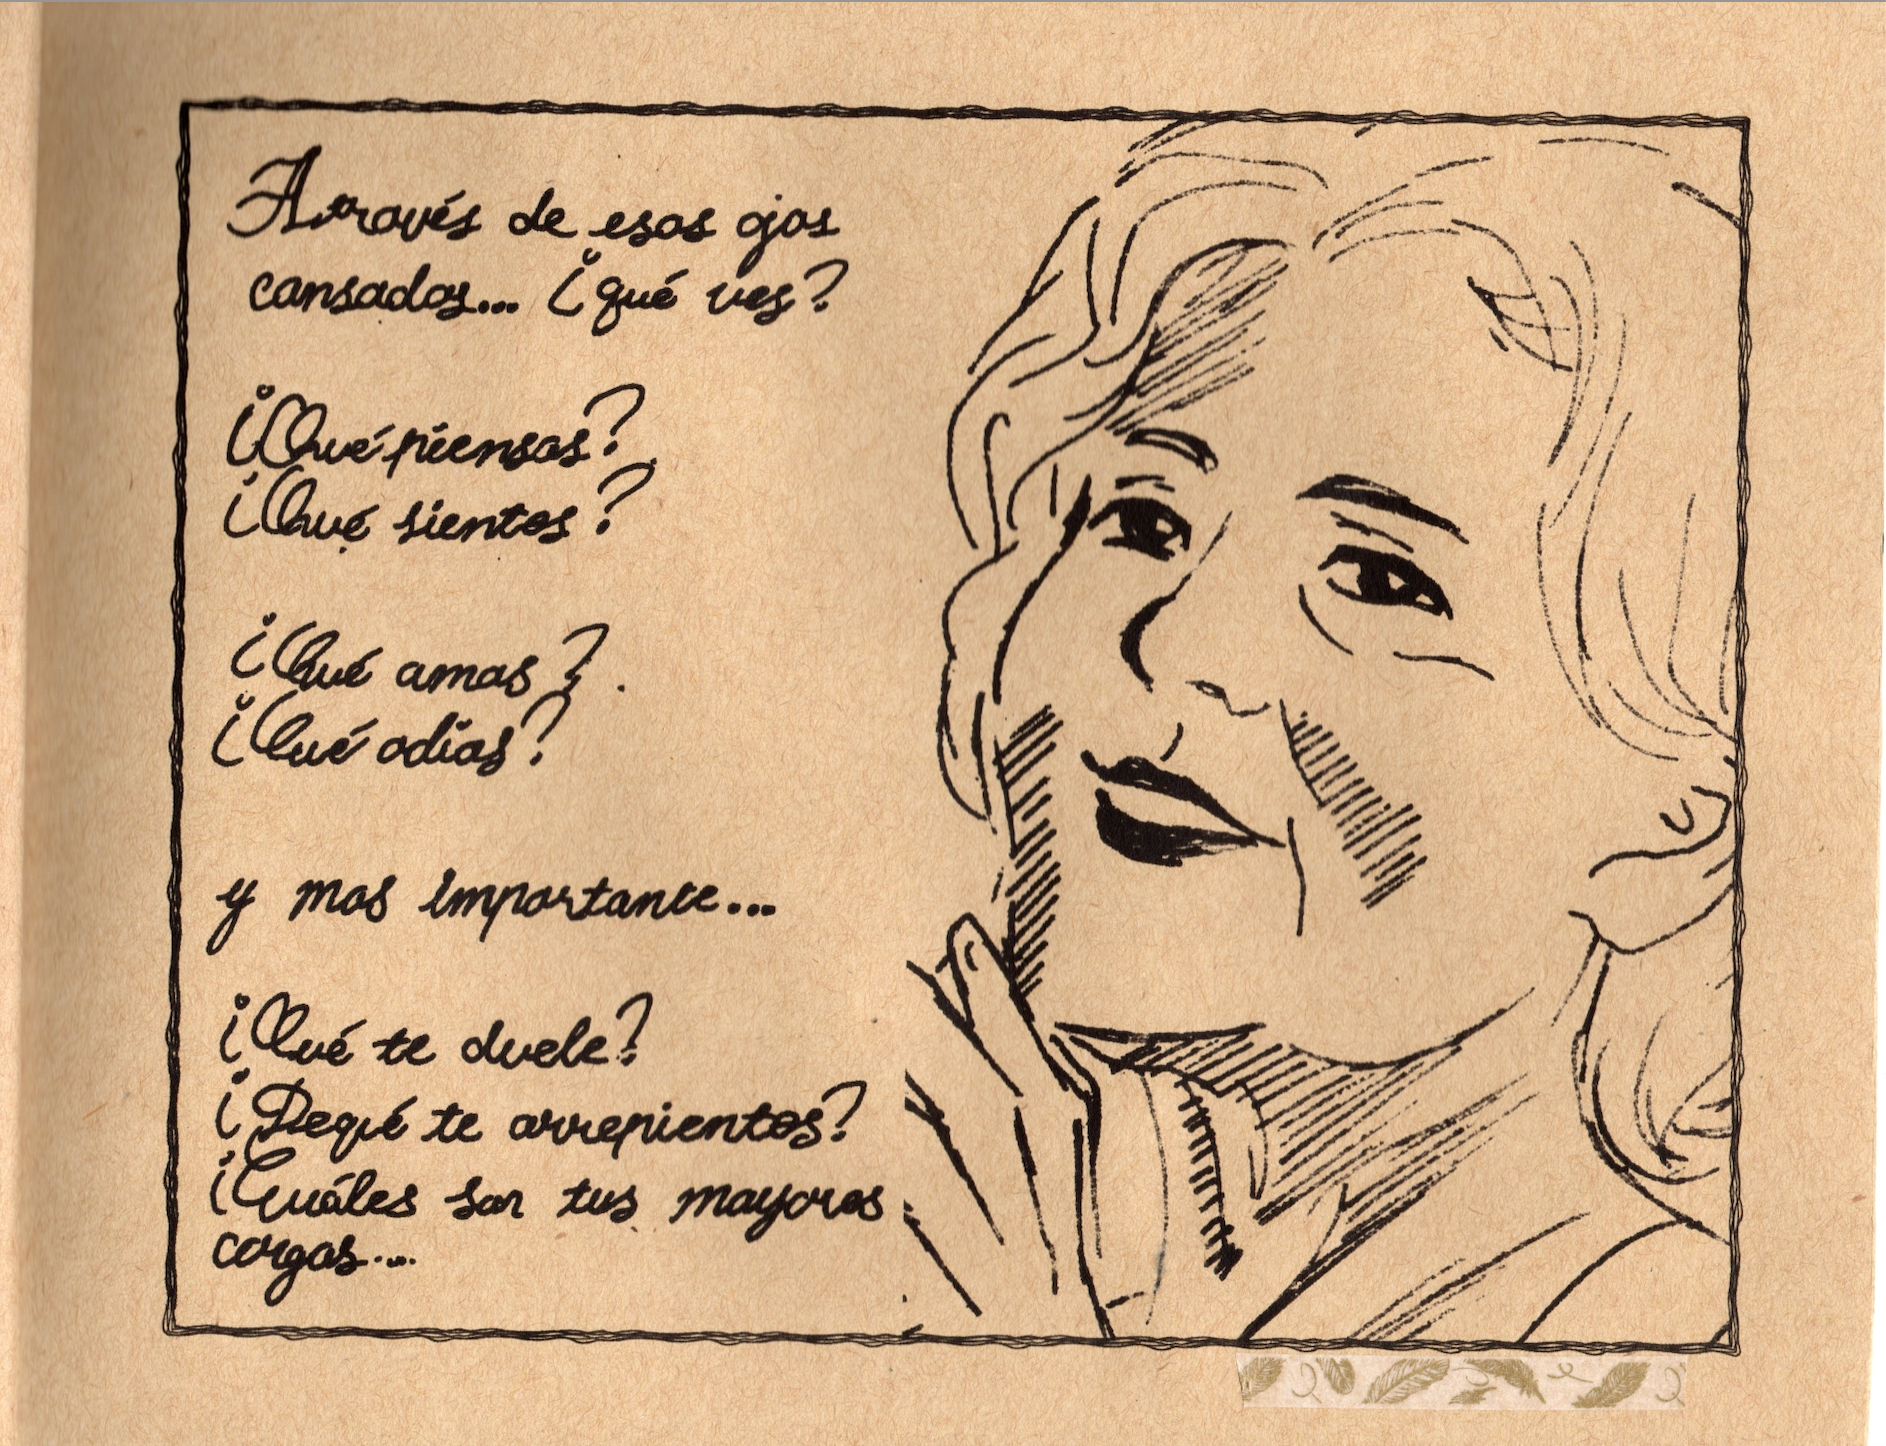 Através de esos ojos
cansados... ¿qué ves?
¿Qué piensas?
¿Qué sientes?
¿Qué amas?
¿Qué odias?
y mas importante...
¿Qué te duele?
¿De qué te arrepientes?
¿Cuáles son tus mayores
cargas...